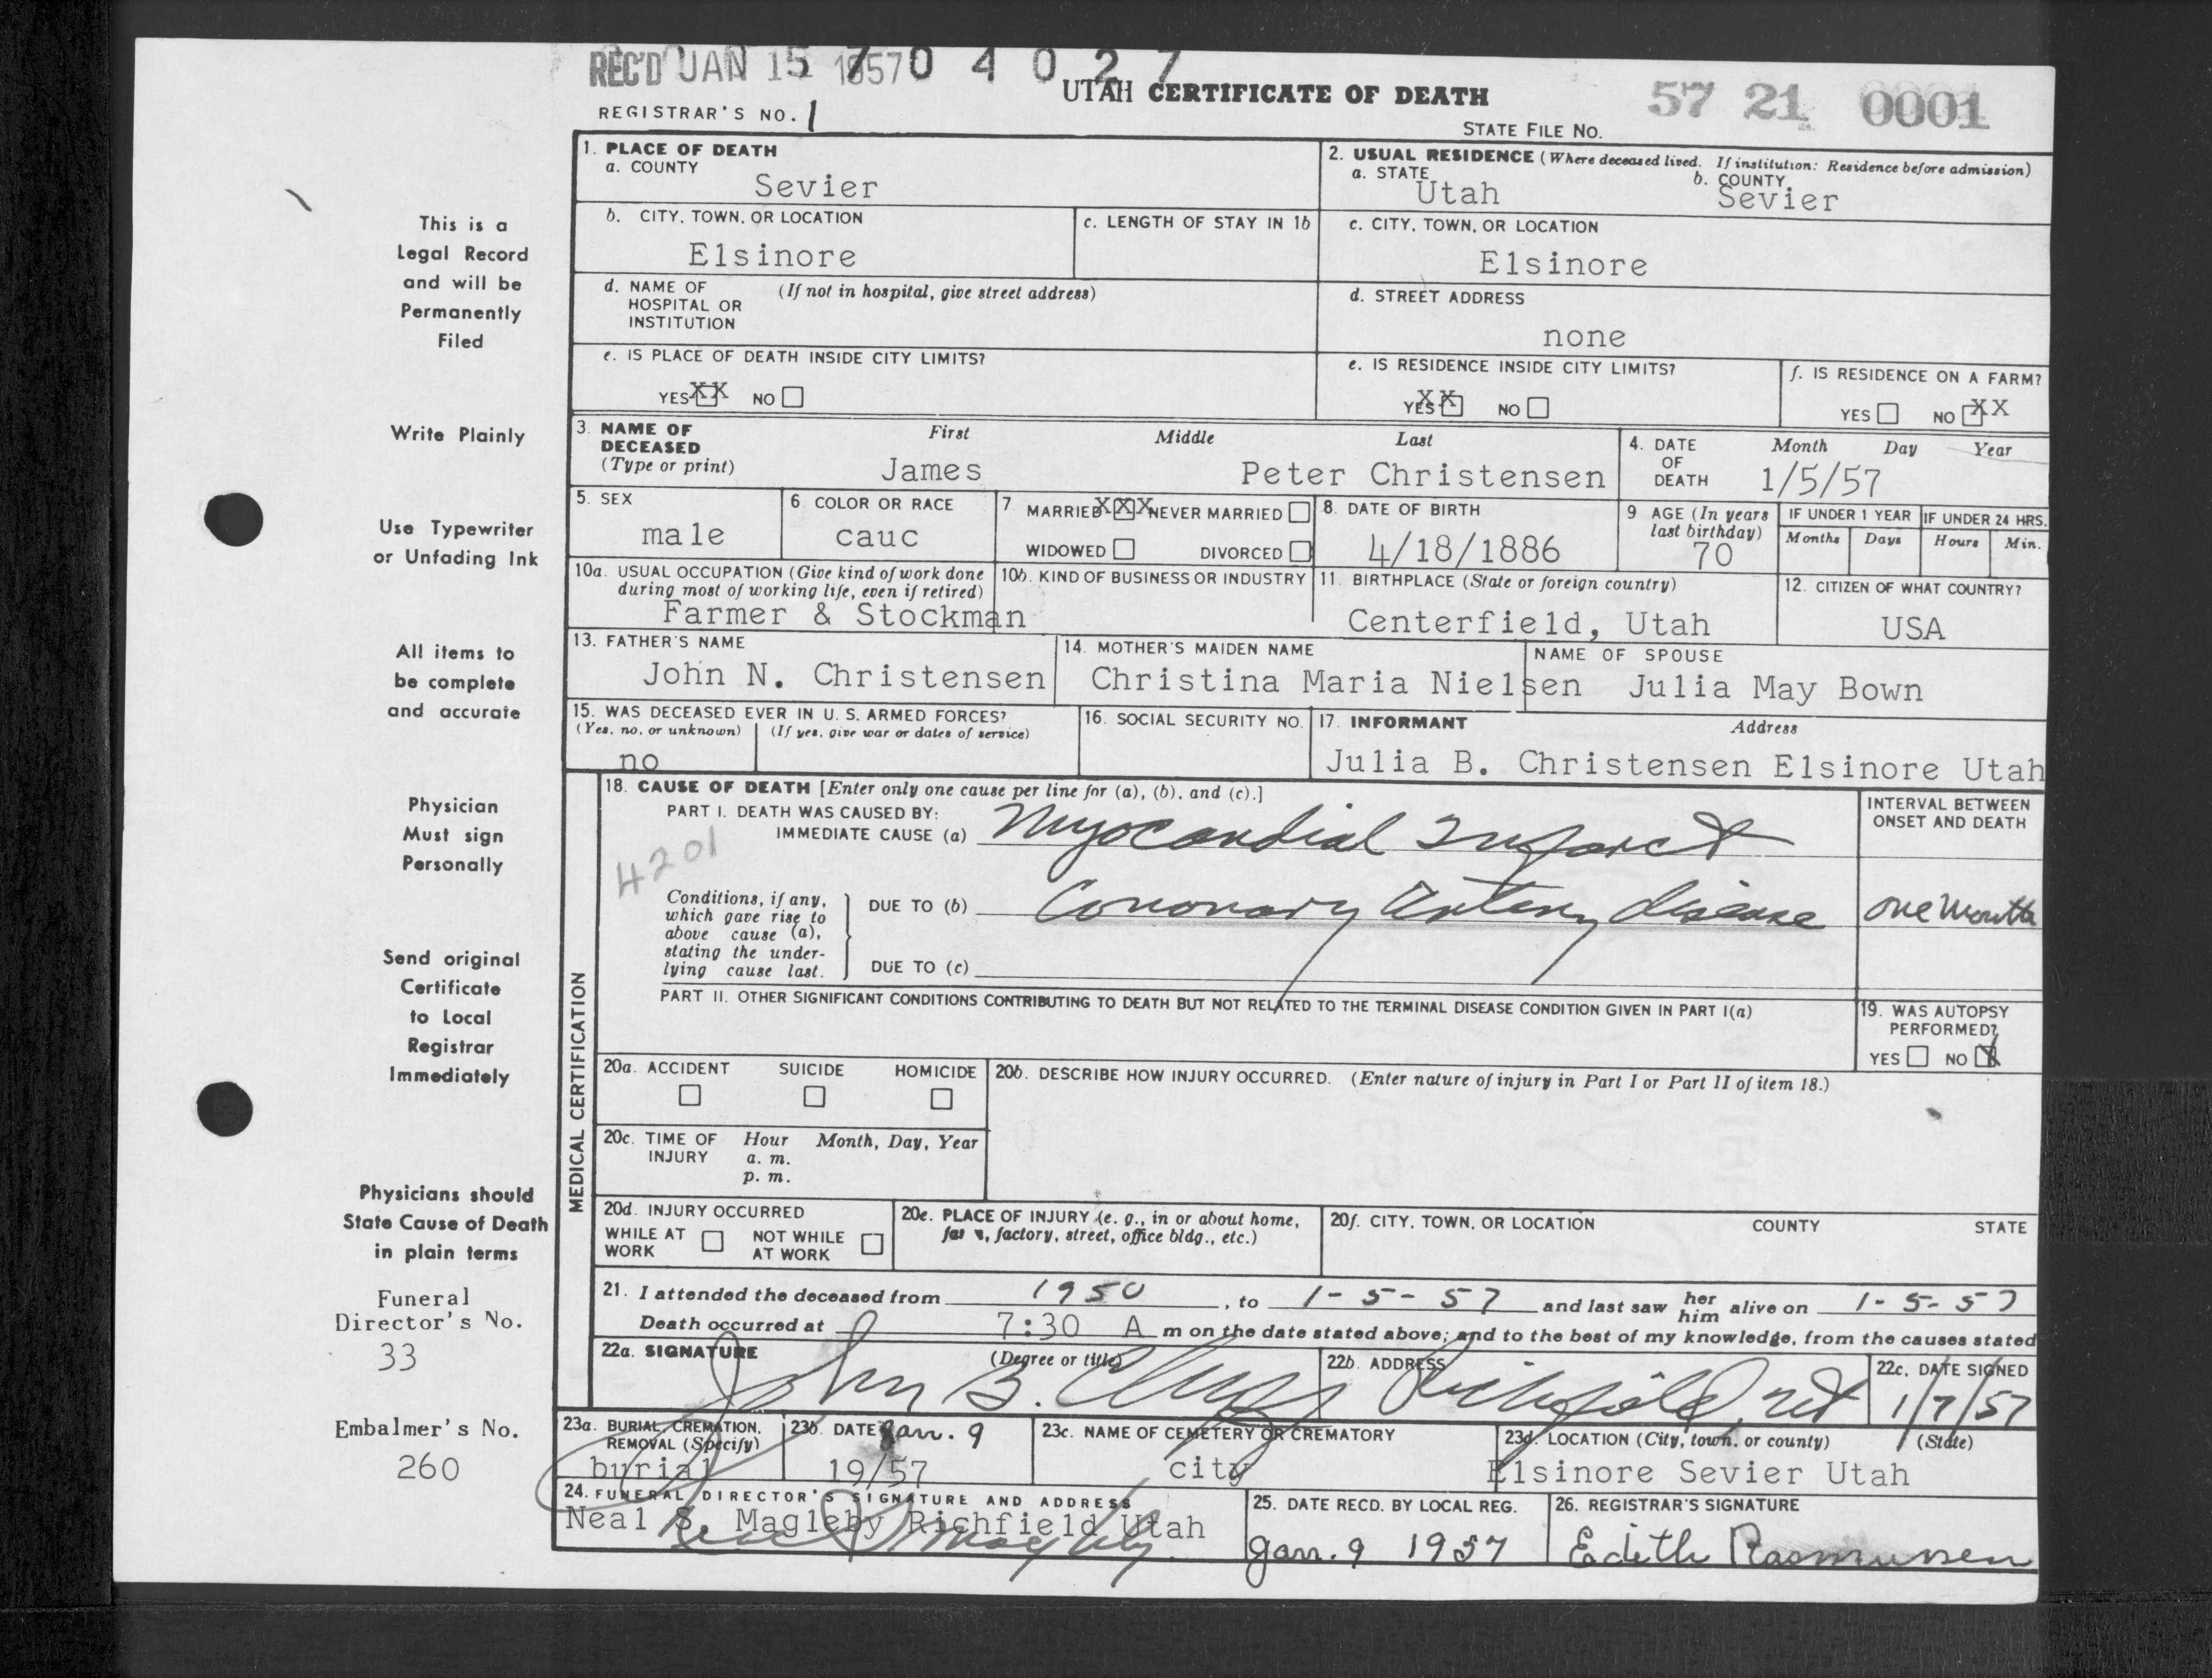 REC'D JAN 15 1957 7 0 4 0 2 7
UTAH CERTIFICATE OF DEATH
57 21 0001
REGISTRAR'S NO. 1
STATE FILE No.
1. PLACE OF DEATH
a. COUNTY
Sevier
2. USUAL RESIDENCE (Where deceased lived. If institution: Residence before admission)
a. STATE b. COUNTY
Utah Sevier
b. CITY, TOWN, OR LOCATION
Elsinore
c. LENGTH OF STAY IN 1b
c. CITY, TOWN, OR LOCATION
Elsinore
d. NAME OF (If not in hospital, give street address)
HOSPITAL OR
INSTITUTION
d. STREET ADDRESS
none
e. IS PLACE OF DEATH INSIDE CITY LIMITS?
YES XX NO
e. IS RESIDENCE INSIDE CITY LIMITS?
YES XX NO
f. IS RESIDENCE ON A FARM?
YES NO XX
3. NAME OF First Middle Last
DECEASED
(Type or print) James Peter Christensen
4. DATE Month Day Year
OF
DEATH 1/5/57
5. SEX
male
6 COLOR OR RACE
cauc
7 MARRIED XXX NEVER MARRIED
WIDOWED DIVORCED
8. DATE OF BIRTH
4/18/1886
9 AGE (In years
last birthday)
70
IF UNDER 1 YEAR
Months Days
IF UNDER 24 HRS.
Hours Min.
10a. USUAL OCCUPATION (Give kind of work done
during most of working life, even if retired)
Farmer & Stockman
10b. KIND OF BUSINESS OR INDUSTRY
11. BIRTHPLACE (State or foreign country)
Centerfield, Utah
12. CITIZEN OF WHAT COUNTRY?
USA
13. FATHER'S NAME
John N. Christensen
14. MOTHER'S MAIDEN NAME
Christina Maria Nielsen
NAME OF SPOUSE
Julia May Bown
15. WAS DECEASED EVER IN U. S. ARMED FORCES?
(Yes, no, or unknown) (If yes, give war or dates of service)
no
16. SOCIAL SECURITY NO.
17. INFORMANT Address
Julia B. Christensen Elsinore Utah
MEDICAL CERTIFICATION
18. CAUSE OF DEATH [Enter only one cause per line for (a), (b), and (c).]
PART I. DEATH WAS CAUSED BY:
IMMEDIATE CAUSE (a) Myocardial Infarct
INTERVAL BETWEEN
ONSET AND DEATH
4201
Conditions, if any,
which gave rise to
above cause (a),
stating the under-
lying cause last.
DUE TO (b) Coronary Artery disease one month
DUE TO (c)
PART II. OTHER SIGNIFICANT CONDITIONS CONTRIBUTING TO DEATH BUT NOT RELATED TO THE TERMINAL DISEASE CONDITION GIVEN IN PART I(a)
19. WAS AUTOPSY
PERFORMED?
YES NO X
20a. ACCIDENT SUICIDE HOMICIDE
20b. DESCRIBE HOW INJURY OCCURRED. (Enter nature of injury in Part I or Part II of item 18.)
20c. TIME OF Hour Month, Day, Year
INJURY a. m.
p. m.
20d. INJURY OCCURRED
WHILE AT NOT WHILE
WORK AT WORK
20e. PLACE OF INJURY (e. g., in or about home,
farm, factory, street, office bldg., etc.)
20f. CITY, TOWN, OR LOCATION COUNTY STATE
21. I attended the deceased from 1950, to 1-5-57 and last saw her him alive on 1-5-57
Death occurred at 7:30 A m on the date stated above; and to the best of my knowledge, from the causes stated
22a. SIGNATURE (Degree or title)
John B.
22b. ADDRESS
Richfield, Ut
22c. DATE SIGNED
1/7/57
23a. BURIAL, CREMATION,
REMOVAL (Specify)
burial
23b. DATE Jan. 9
19/57
23c. NAME OF CEMETERY OR CREMATORY
city
23d. LOCATION (City, town, or county) (State)
Elsinore Sevier Utah
24. FUNERAL DIRECTOR'S SIGNATURE AND ADDRESS
Neal S. Magleby Richfield Utah
Neal S Magleby
25. DATE RECD. BY LOCAL REG.
Jan. 9 1957
26. REGISTRAR'S SIGNATURE
Edith Rasmussen
This is a
Legal Record
and will be
Permanently
Filed
Write Plainly
Use Typewriter
or Unfading Ink
All items to
be complete
and accurate
Physician
Must sign
Personally
Send original
Certificate
to Local
Registrar
Immediately
Physicians should
State Cause of Death
in plain terms
Funeral
Director's No.
33
Embalmer's No.
260